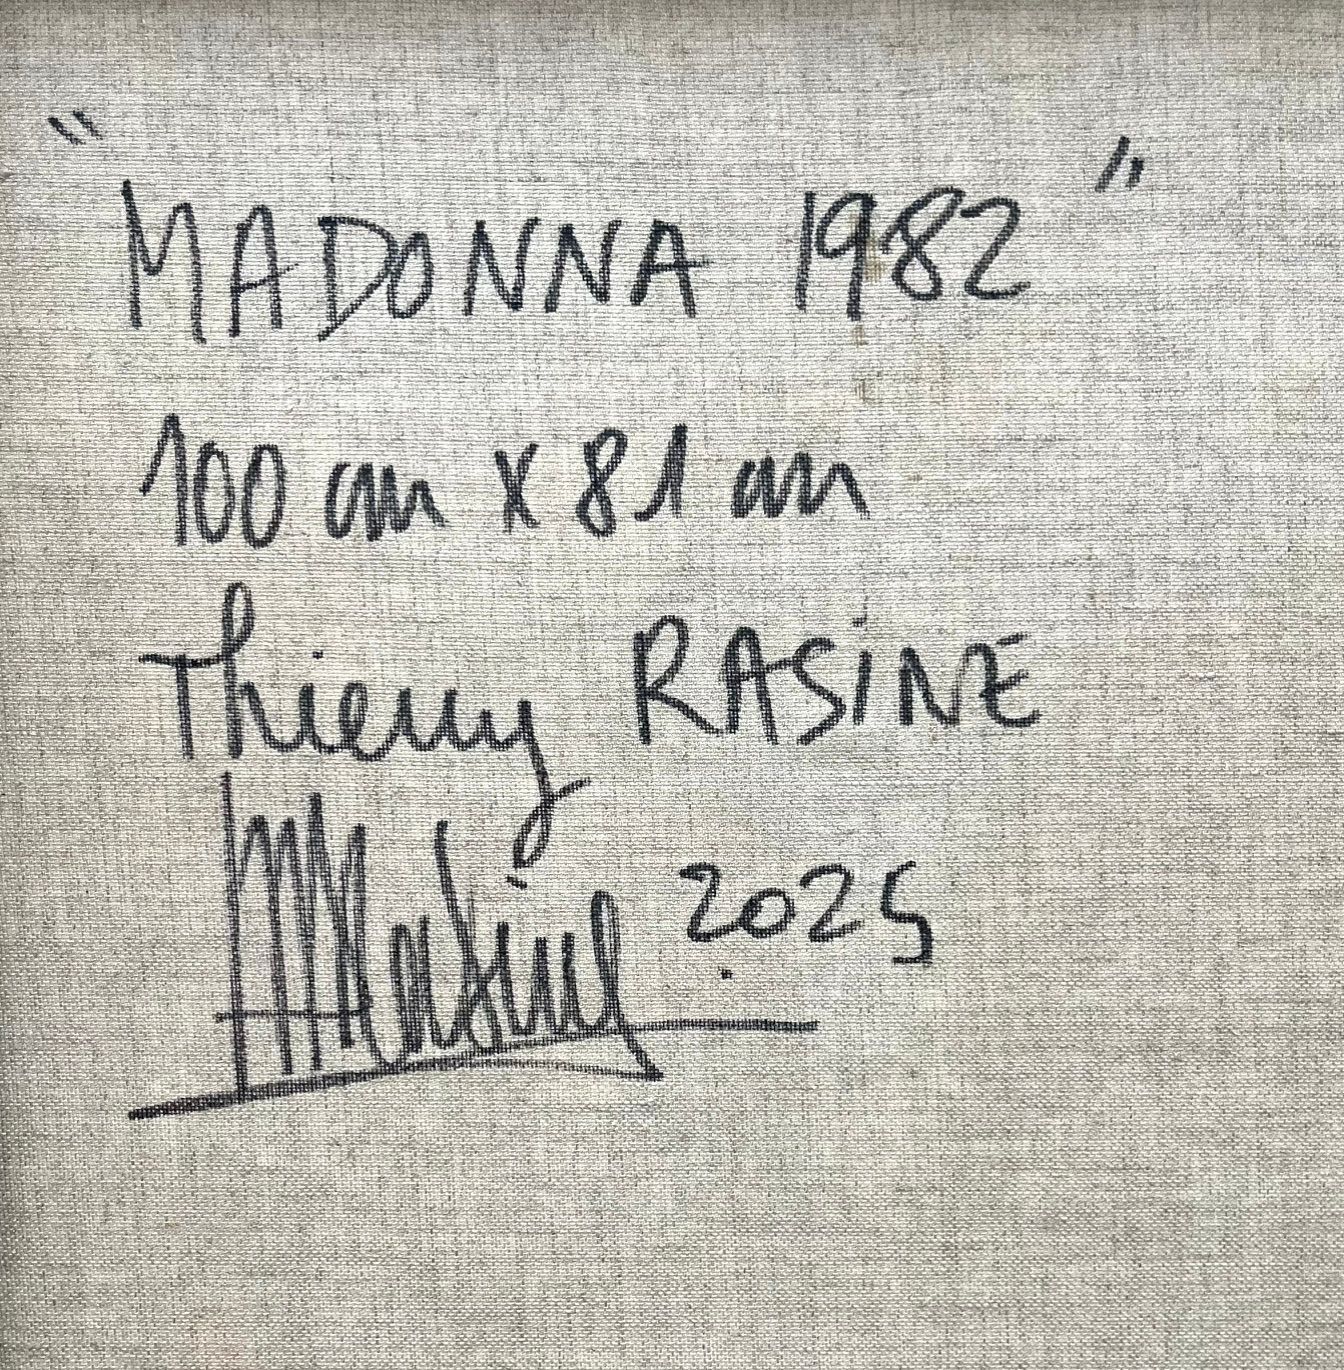 "MADONNA 1982"
100 cm x 81 cm
Thierry RASINE
Rasine 2025